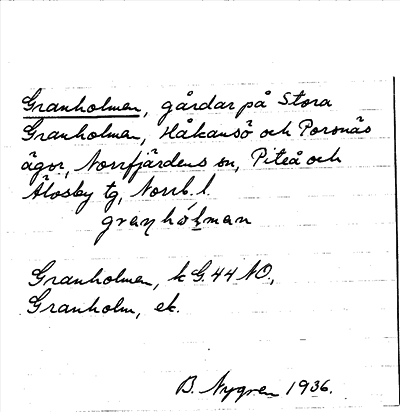 Granholmen, gårdar på Stora
Granholmen, Håkansö och Porsnäs
ägor, Norrfjärdens sn, Piteå och
Älvsby tg, Norrb. l.
granhólman
Granholmen, k G.44 NO,
Granholm, ek.
B. Nygren 1936.